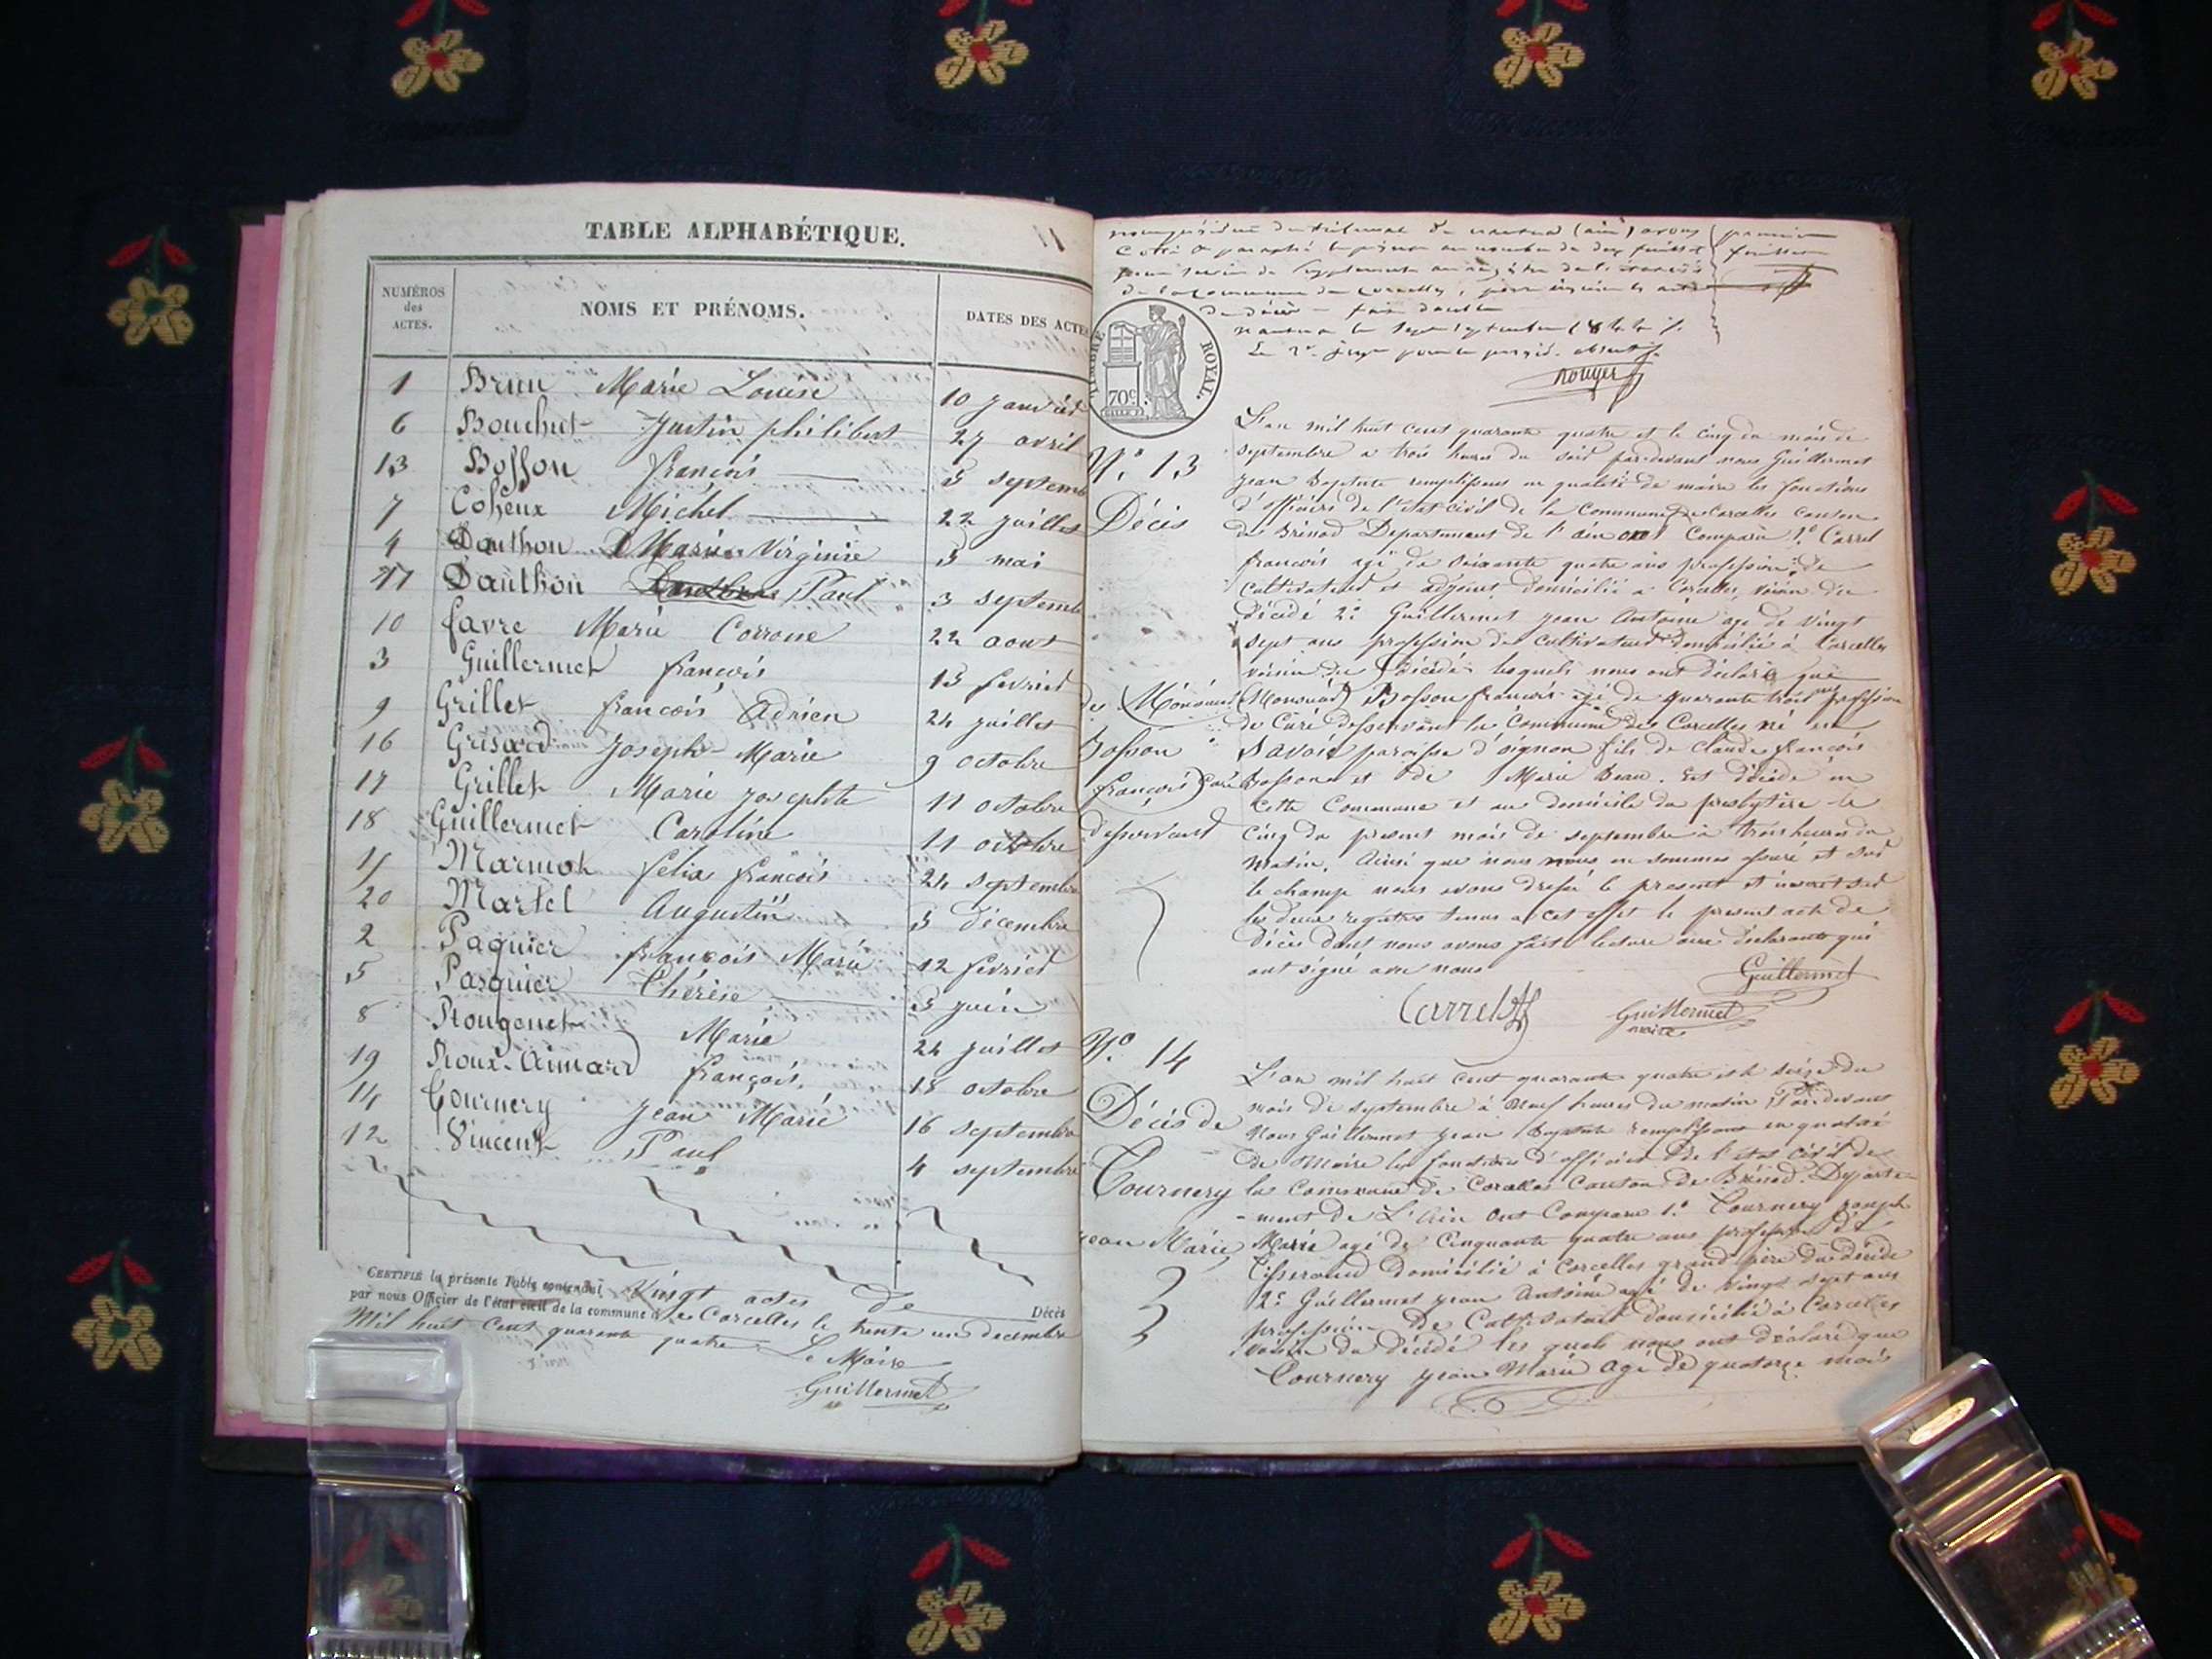 TABLE ALPHABÉTIQUE.
NUMÉROS des ACTES. NOMS ET PRÉNOMS. DATES DES ACTES
1 Brun Marie Louise 10 janvier
6 Bouchet Justin philibert 27 avril
13 Bosson françois 5 septemb
7 Coheux Michel 22 juillet
4 Dauthon Marie Virginie 5 mai
11 Dauthon Paul 3 septemb
10 favre Marie Corrone 22 aout
3 Guillermet françois 15 fevrier
9 Grillet françois Adrien 24 juillet
16 Grisard Joseph Marie 9 octobre
17 Grillet Marie josephte 11 octobre
18 Guillermet Caroline 11 octobre
15 Marmot felix françois 24 septembre
20 Martel Augustin 5 décembre
2 Paquier françois Marie 12 fevrier
5 Pasquier Thérèse 5 juin
8 Rougenet Marie 24 juillet
19 Roux-Aimard françois 18 octobre
14 Tournery Jean Marie 16 septembre
12 Vincent Paul 4 septembre
CERTIFIÉ la présente Table contenant Vingt actes de Décès
par nous Officier de l'état civil de la commune de Corcelles le trente un decembre
Mil huit cent quarante quatre Le Maire
Guillermet
TIMBRE ROYAL.
70c
Rouyer
L'an mil huit cent quarante quatre et le cinq du mois de
N.° 13
septembre a trois heures du soir par-devant nous Guillermet
jean Baptiste remplissans en qualité de maire les fonctions
Décès
d'officiers de l'etat civil de la Commune de Corcelles canton
de Brénod Departement de l'ain ont Comparu 1.° Carrel
françois agé de soixante quatre ans profession de
cultivateur et adjoint domicilié a Corcelles, voisin du
décédé 2.° Guillermet jean Antoine agé de vingt
sept ans profession de cultivateur domicilié à Corcelles
voisin du décédé lesquels nous ont déclaré que
Bosson françois agé de quarante trois ans profession
de Curé desservant la Commune de Corcelles né en
Bosson
Savoie paroisse d' fils de claude françois
(françois) Curé
Bosson et de Marie Beau. Est décédé en
Cette Commune et au domicile du presbytère le
desservant
cinq du present mois de septembre à trois heures du
matin. Ainsi que nous nous en sommes assuré et sur
le champ nous avons dressé le present et inscrit sur
les deux registres tenus a cet effet le present acte de
décès dont nous avons fait lecture aux déclarants qui
ont signé avec nous
Guillermet
Carrel
Guillermet
maire
N.° 14
L'an mil huit cent quarante quatre et le seize du
mois de septembre à neuf heures du matin Par-devant
Décès de
Nous Guillermet jean Baptiste remplissans en qualité
de Maire les fonctions d'officier de l'etat civil de
Tournery
la Commune de Corcelles Canton de Brénod. Departe-
-ment de L'Ain ont Comparu 1.° Tournery joseph
jean Marie
Marie agé de Cinquante quatre ans profession de
Tisserand domicilié à Corcelles grand père du décédé
2.° Guillermet jean Antoine agé de vingt sept ans
profession De Cultivateur domicilié à Corcelles
voisin du décédé les quels nous ont déclaré que
Tournery jean Marie agé de quatorze mois